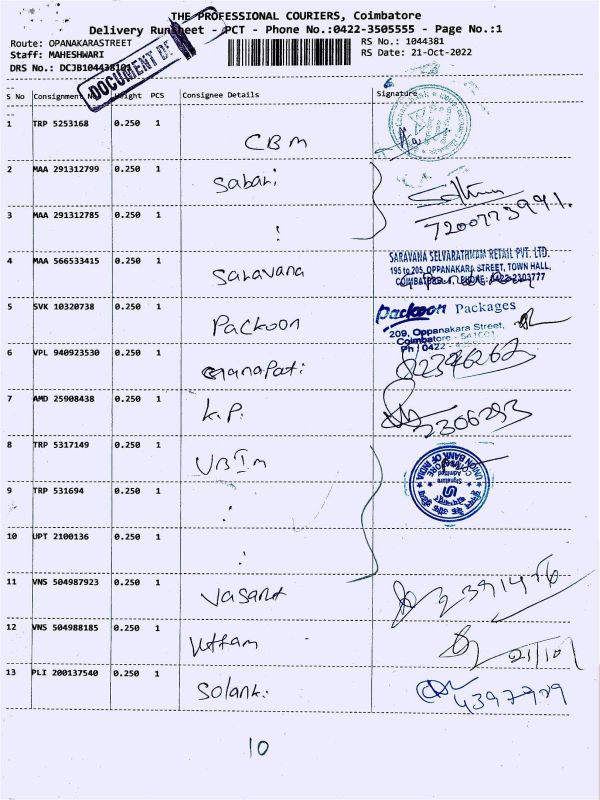 THE PROFESSIONAL COURIERS, Coimbatore
Delivery Runsheet - PCT - Phone No.:0422-3505555 - Page No.:1
Route: OPANAKARASTREET RS No.: 1044381
Staff: MAHESHWARI RS Date: 21-Oct-2022
DRS No.: DCJB104438101
DOCUMENT
S No Consignment No Weight PCS Consignee Details Signature
1 TRP 5253168 0.250 1 CBM
2 MAA 291312799 0.250 1 Sabari
3 MAA 291312785 0.250 1
7200773991.
4 MAA 566533415 0.250 1 Saravana
SARAVANA SELVARATHNAM RETAIL PVT. LTD.
195 to 205, OPPANAKARA STREET, TOWN HALL,
COIMBATORE PHONE: 0422-2303777
5 SVK 10320738 0.250 1 Packoon
packoon Packages
209, Oppanakara Street,
Coimbatore - 641001
Ph : 0422 -
6 VPL 940923530 0.250 1 Ganapati
7 AMD 25908438 0.250 1 K.P. 2306293
8 TRP 5317149 0.250 1 UBIM
UNION BANK OF INDIA
9 TRP 531694 0.250 1
10 UPT 2100136 0.250 1
11 VNS 504987923 0.250 1 Vasant 2391456
12 VNS 504988185 0.250 1 Uttam 21/10/
13 PLI 200137540 0.250 1 Solanki 4397909
10